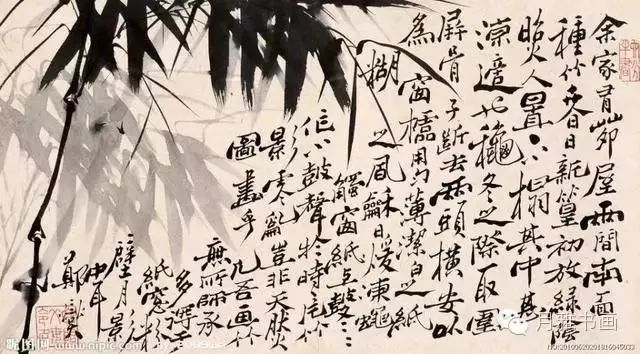 余家有茆屋二間南面
種竹夏日新篁初放綠陰
照人置小榻其中甚
涼適也穐冬之際取圍
屏骨子斷去兩頭橫安以
為窗櫺用勻薄潔白之紙
糊之風龢日煖凍蠅
觸窗紙上鼓鼓
作小鼓聲於時一片竹
影零亂豈非天然
圖畫乎凡吾画竹
無所師承
多得於
紙窗粉
壁月影
中耳
鄭燮
昵图网
月雅书画